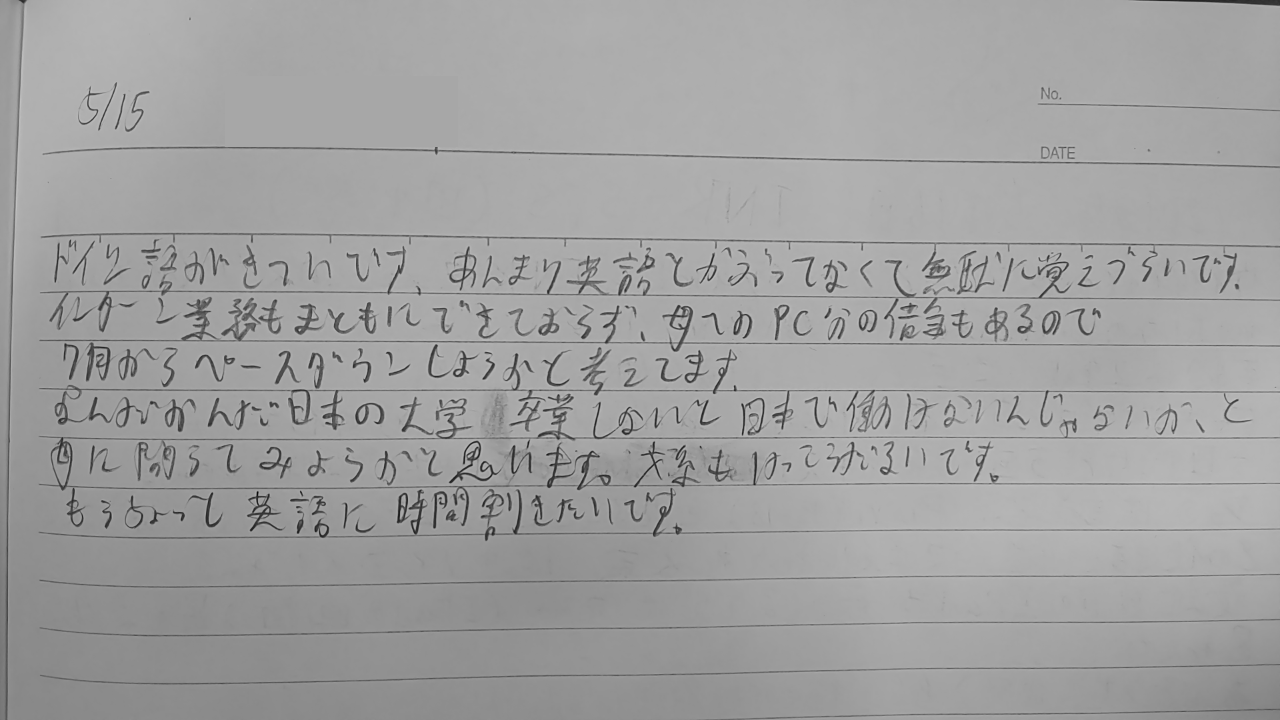 5/15
No.
DATE
ドイツ語がきついです、あんまり英語とかぶってなくて無駄に覚えづらいです.
インターン業務もまともにできておらず、母へのPC分の借金もあるので
7月からペースダウンしようかと考えてます.
なんだかんだ日本の大学 卒業しないと日本で働けないんじゃないか、と
母に問うてみようかと思います。 もけっこうだるいです。
もうちょっと英語に時間割きたいです。